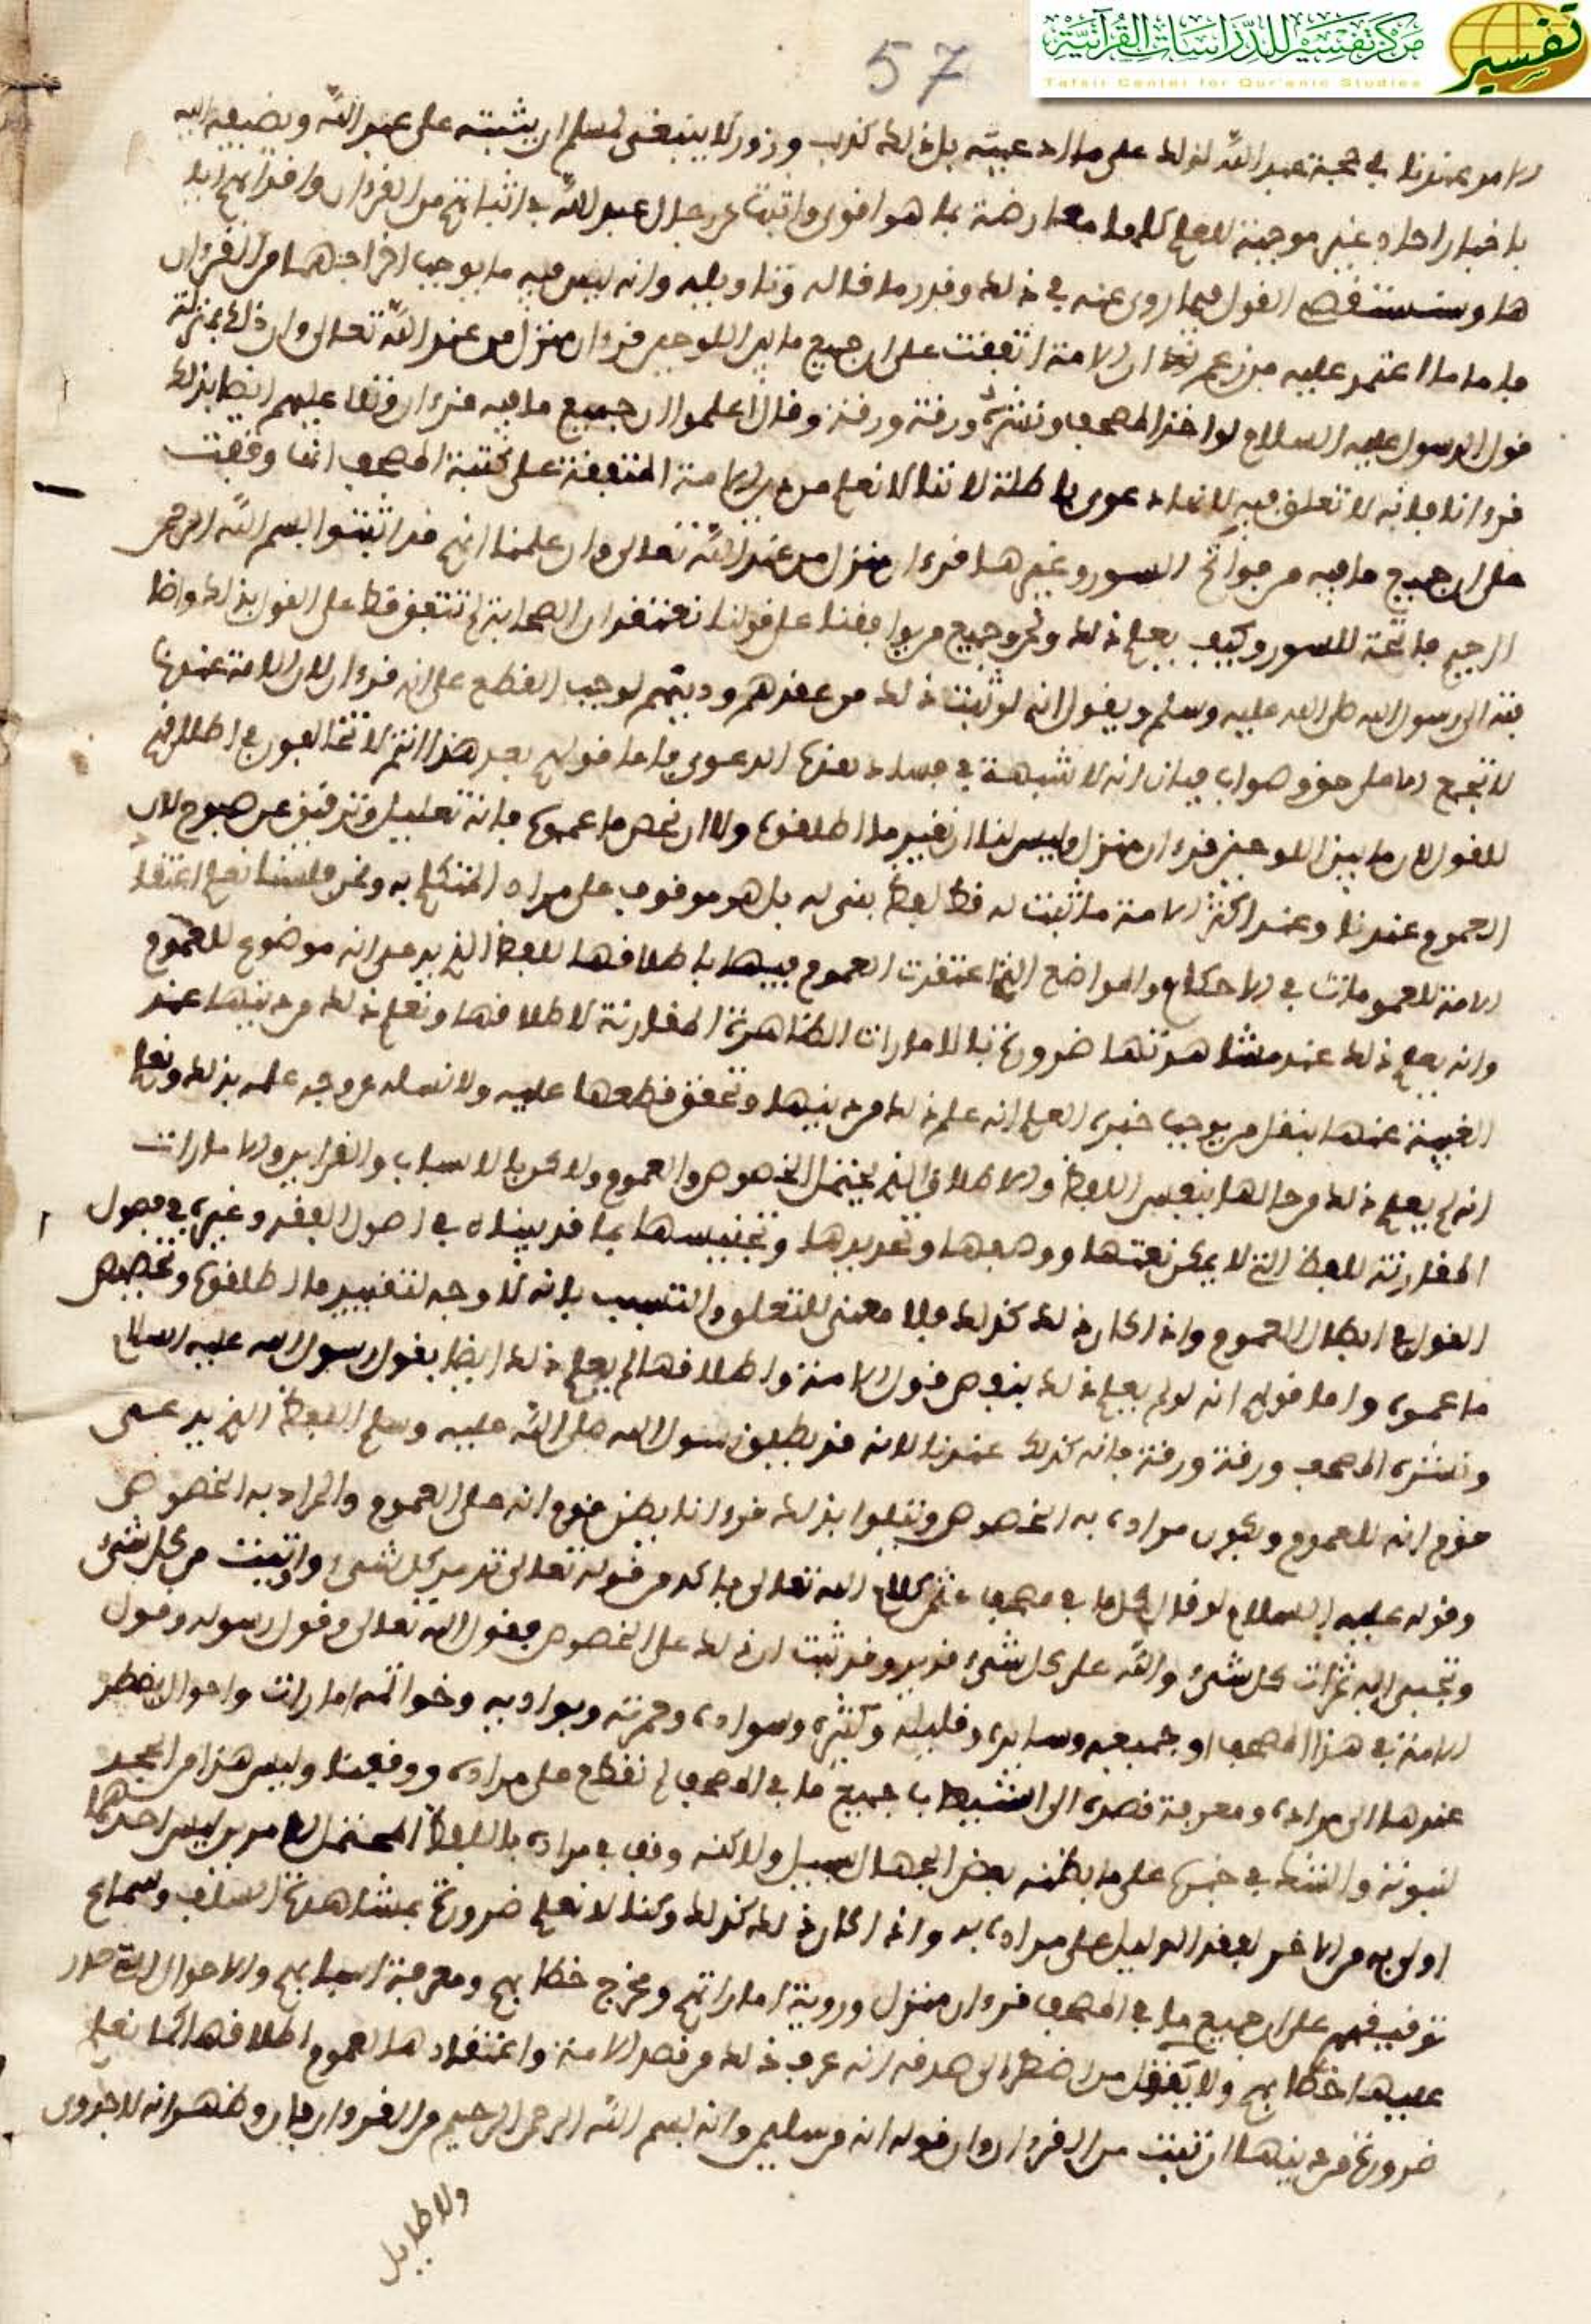 مركز تفسير للدراسات القرآنية
Tafsir Center for Qur'anic Studies
تفسير
57
الامر عندنا في صحبة عبد الله لذلك على ما ادعيته بل ذلك كذب وزور لا ينبغي لمسلم ان يثبته على عبد الله ويضيفه اليه
باخبار احاد غير موجبة للعلم كلها معارضة بما هو اقوى واثبت عن رجال عبد الله في اثباتها من القرءان واقرائهم اياـ
ها وسنستقصي القول فيما روي عنه في ذلك وقدر ما قاله وتاويله وانه ليس فيه ما يوجب اخراجهما من القرءان
فاما ما اعتمد عليه من زعم ان الامة اتفقت على ان جميع ما بين اللوحين قرءان منزل من عند الله تعالى وان ذلك بمنزلة
قول الرسول عليه السلام لو اخذ المصحف ونشره ورقة ورقة وقال اعلموا ان جميع ما فيه قرءان وتلا عليهم ايضا بذلك
قرءانا فانه لا تعلق فيه لانها دعوى باطلة لاننا لا نعلم من دين الامة المتفقة على كتبة المصحف انها وقفت
على ان جميع ما فيه من فواتح السور وغيرها قرءان منزل من عند الله تعالى وان علمنا انهم قد اثبتوا بسم الله الرحمن
الرحيم فاتحة للسور وكيف يعلم ذلك ونحن وجميع من يوافقنا على قولنا نعتقد ان الصحابة لم تتفق قط على القول بذلك واضاـ
فته الى رسول الله صلى الله عليه وسلم ويقول انه لو ثبت ذلك من عقدهم ودينهم لوجب القطع على انه قرءان لان الامة عندنا
لا تجمع الا على حق وصواب فبان انه لا شبهة في فساد هذه الدعوى فاما قولهم بعد هذا انتم لا تخالفون في اطلاقهم
للقول لان ما بين اللوحين قرءان منزل وليس لنا ان نغير ما اطلقوه ولا ان نخص ما عموه فانه تعليل وتدقيق عن صبوح لان
العموم عندنا وعند اكثر الامة ما ثبت له قط لفظ بني له بل هو موقوف على مراد المتكلم به ونحن فلسنا نعلم اعتقاد
الامة للعموم مات في الاحكام والمواضع التي اعتقدت العموم فيها باطلاقها للفظ الذي يدعي انه موضوع للعموم
وانه يعلم ذلك عند مشاهدتها ضرورة بالامارات الظاهرة المقارنة لاطلاقها ونعلم ذلك من دينها عند
الغيبة عنها بنقل من يوجب خبره العلم انه علم ذلك من دينها وتحقق قطعها عليه ولا نساله عن وجه علمه بذلك ونعلم
انه لم يعلم ذلك من حالها بنفس اللفظ والاطلاق الذي يحتمل الخصوص والعموم ولاكن بالاسباب والقراين والامارات
المقارنة للفظ التي لا يمكن نعتها ووصفها وتحديدها وتجنيسها بما قد بيناه في اصول الفقه وغيره في فصول
القول في ابطال العموم واذا كان ذلك كذلك فلا معنى للتعلق والتسبب بانه لا وجه لتغيير ما اطلقوه وتخصيص
ما عموه واما قولهم انه لو لم يعلم ذلك بنفس قول الامة واطلاقها لم يعلم ذلك ايضا بقول رسول الله عليه السلام
ونشره المصحف ورقة ورقة فانه كذلك عندنا لانه قد يطلق رسول الله صلى الله عليه وسلم اللفظ الذي يدعي
قوم انه للعموم ويكون مراده به الخصوص ويتلوا بذلك قرءانا يظن قوم انه على العموم والمراد به الخصوص
وقوله عليه السلام لو قال كل ما في مصحف كلام الله تعالى فاكد من قوله تعالى تدمر كل شيء واوتيت من كل شيء
وتجبى اليه ثمرات كل شيء والله على كل شيء قدير وقد ثبت ان ذلك على الخصوص فقول الله تعالى وقول رسوله وقول
الامة في هذا المصحف او جميعه وسايره وقليله وكثيره وسواده وحمرته وبواديه وخواتمه امارات واحوال يضطر
عندها الى مراده ومعرفة قصده الى جميع ما في المصحف لم نقطع على مراده ووقفنا وليس هذا من الجحد
لنبوته والشك في خبره على ما يظنه بعض الجهال بسبيل ولاكنه وقف في مراده باللفظ المحتمل لامرين ليس احدهما
اولى به من الاخر لفقد الدليل على مراده به واذا كان ذلك كذلك وكنا لا نعلم ضرورة بمشاهدة السلف وسماع
توقيفهم على ان جميع ما في المصحف قرءان منزل وروية اماراتهم ومخرج خطابهم ومعرفة اسبابهم والاحوال التي صدر
عليها خطابهم ولا بنقل من اضطر الى صدقه انه عرف ذلك من قصد الامة واعتقادها العموم اطلاقها كما نعلم
ضرورة من دينها ان تبت من القرءان وان قوله انه من سليمن وانه بسم الله الرحمن الرحيم من القرءان فبان وظهر انه لا جدوى
ولا طايل